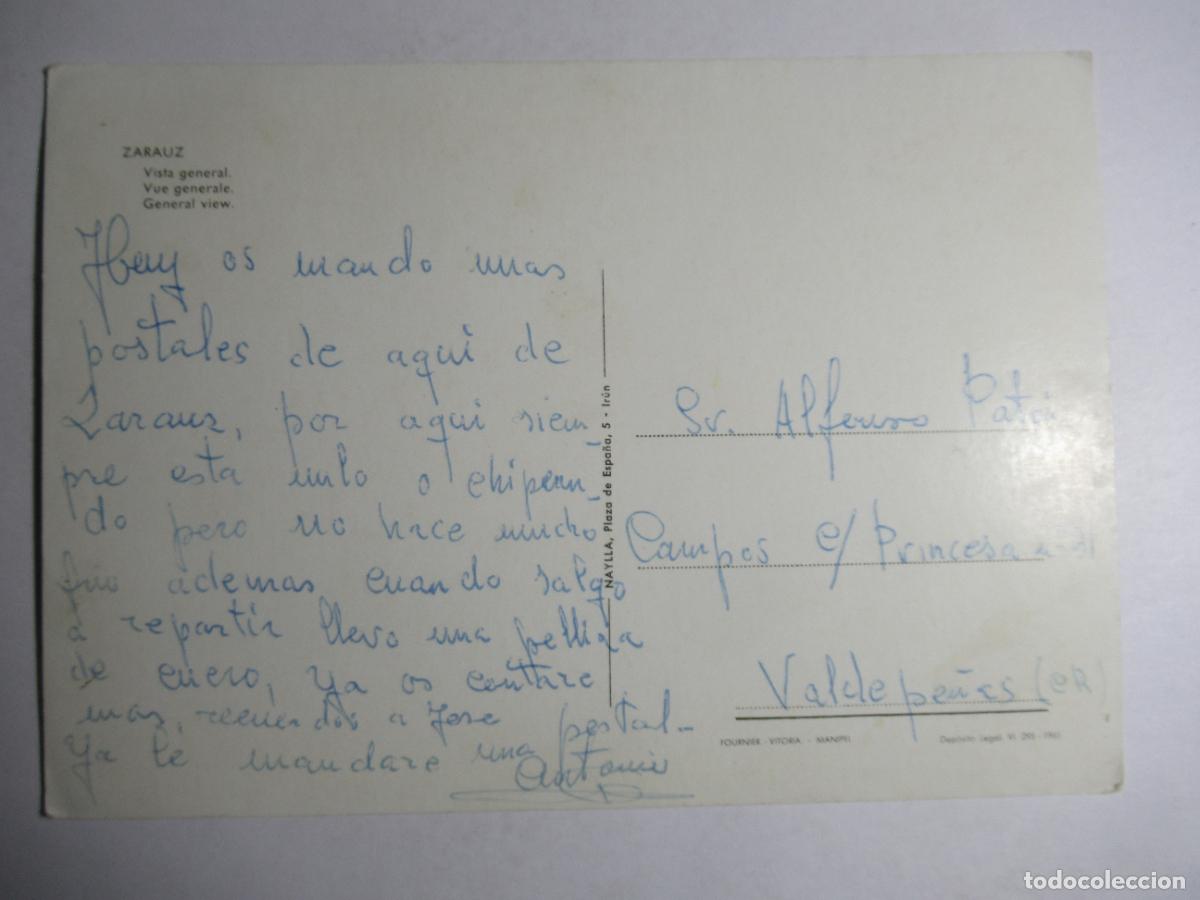 ZARAUZ
Vista general.
Vue generale.
General view.
Hoy os mando unas
postales de aqui de
Zarauz, por aqui siem-
pre esta nulo o chipean-
do pero no hace mucho
frio ademas cuando salgo
a repartir llevo una pelliza
de cuero, ya os contare
mas, recuerdos a Jose
Ya te mandare una postal-
Antonio
NAYLLA, Plaza de España, 5 - Irún
Sr. Alfonso
Campos c/ Princesa
Valdepeñas (CR)
FOURNIER - VITORIA - MANIPEL
Depósito Legal: VI. 295 -
todocoleccion